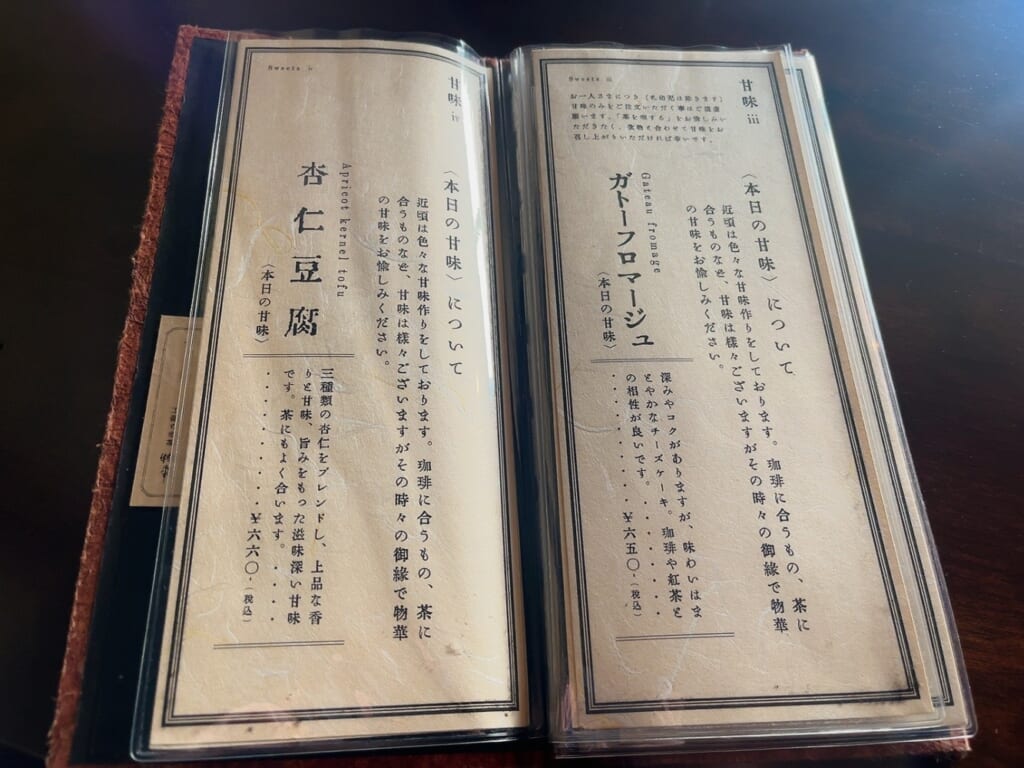 甘味 iii
Sweets iii
お一人さまにつき（乳幼児は除きます）
甘味のみをご注文いただく事はご遠慮
願います。「茶を喫する」をお愉しみい
ただきたく、飲物と合わせて甘味をお
召し上がりいただければ幸いです。
〈本日の甘味〉について
近頃は色々な甘味作りをしております。珈琲に合うもの、茶に
合うものなど、甘味は様々ございますがその時々の御縁で物華
の甘味をお愉しみください。
Gateau fromage
ガトーフロマージュ
〈本日の甘味〉
深みやコクがありますが、味わいはま
ろやかなチーズケーキ。珈琲や紅茶と
の相性が良いです。・・・・・・・・
・・・・・・・・・￥六五〇-（税込）
甘味 iv
Sweets iv
〈本日の甘味〉について
近頃は色々な甘味作りをしております。珈琲に合うもの、茶に
合うものなど、甘味は様々ございますがその時々の御縁で物華
の甘味をお愉しみください。
Apricot kernel tofu
杏仁豆腐
〈本日の甘味〉
三種類の杏仁をブレンドし、上品な香
りと甘味、旨みをもった滋味深い甘味
です。茶にもよく合います。・・・・
・・・・・・・・・￥六六〇-（税込）